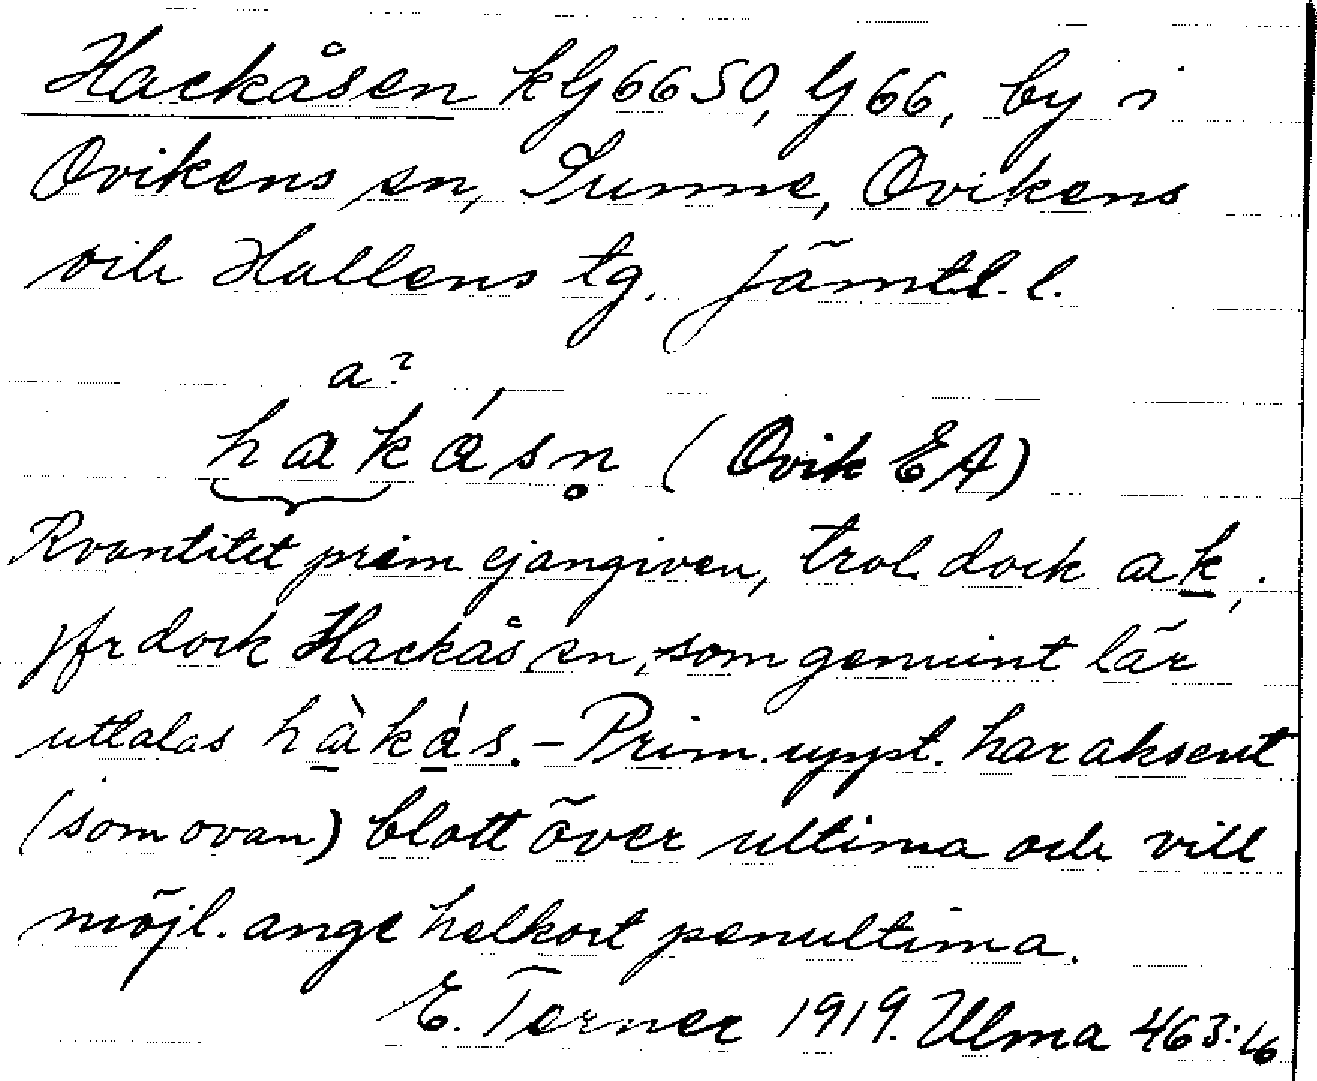 Hackåsen kG6650, G66, by i
Ovikens sn, Sunne, Ovikens
och Hallens tg. Jämtl. l.
a?
hakásn̥ (Ovik EA)
Kvantitet prim ej angiven, trol. dock ak;
jfr dock Hackås sn, som genuint lär
uttalas hàkás. – Prim. uppt. har aksent
(som ovan) blott över ultima och vill
möjl. ange helkort penultima.
E. Terner 1919. Ulma 463:16